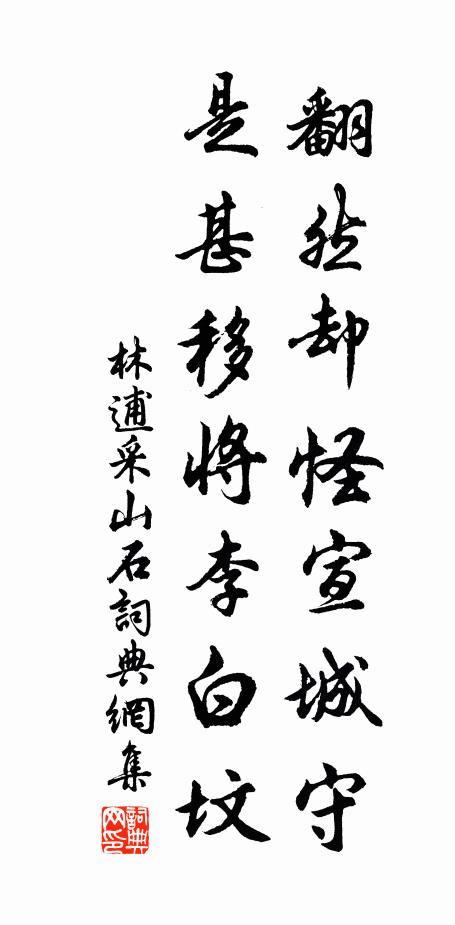 翻然却怪宣城守
是甚移將李白墳
林逋采山石詞典網集
詞典网印